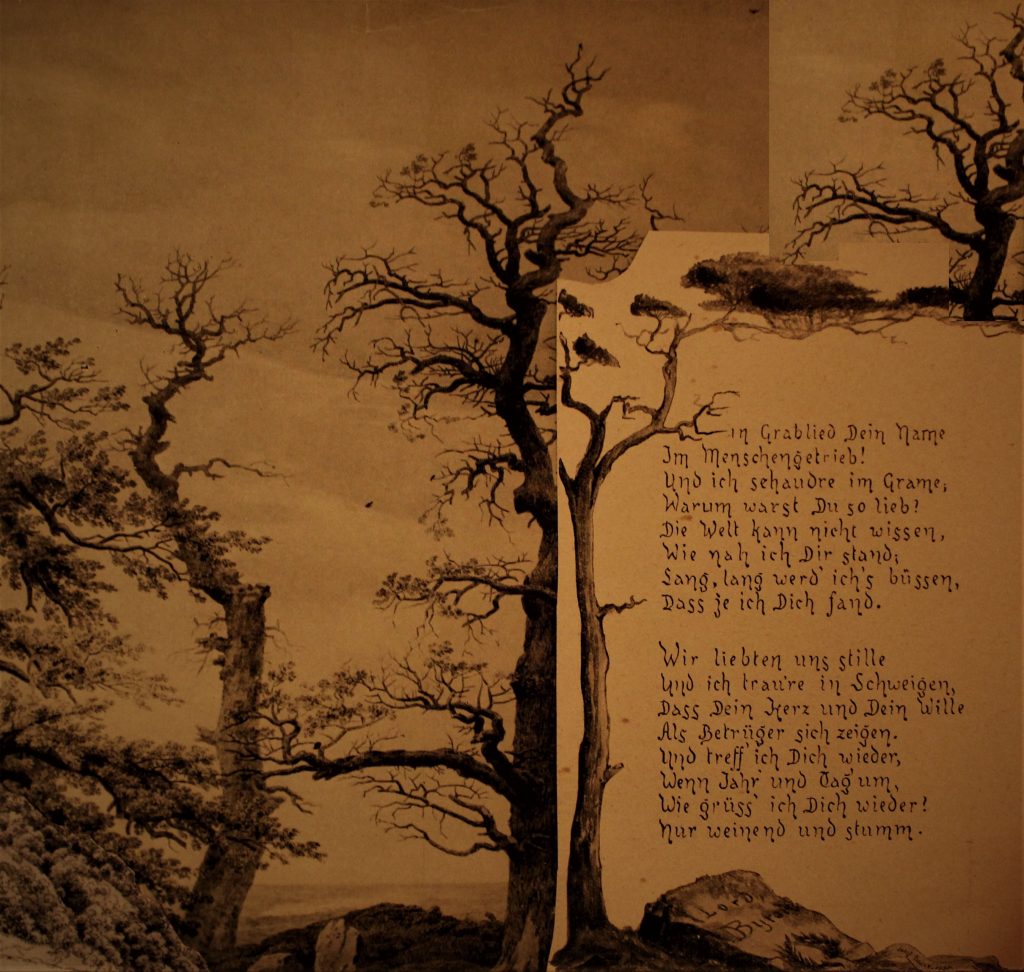 in Grablied Dein Name
Im Menschengetrieb!
Und ich schaudre im Grame;
Warum warst Du so lieb?
Die Welt kann nicht wissen,
Wie nah ich Dir stand;
Lang, lang werd' ich's büssen,
Dass je ich Dich fand.
Wir liebten uns stille
Und ich trau're in Schweigen,
Dass Dein Herz und Dein Wille
Als Betrüger sich zeigen.
Und treff' ich Dich wieder,
Wenn Jahr und Tag um,
Wie grüss' ich Dich wieder?
Nur weinend und stumm.
Lord
Byron